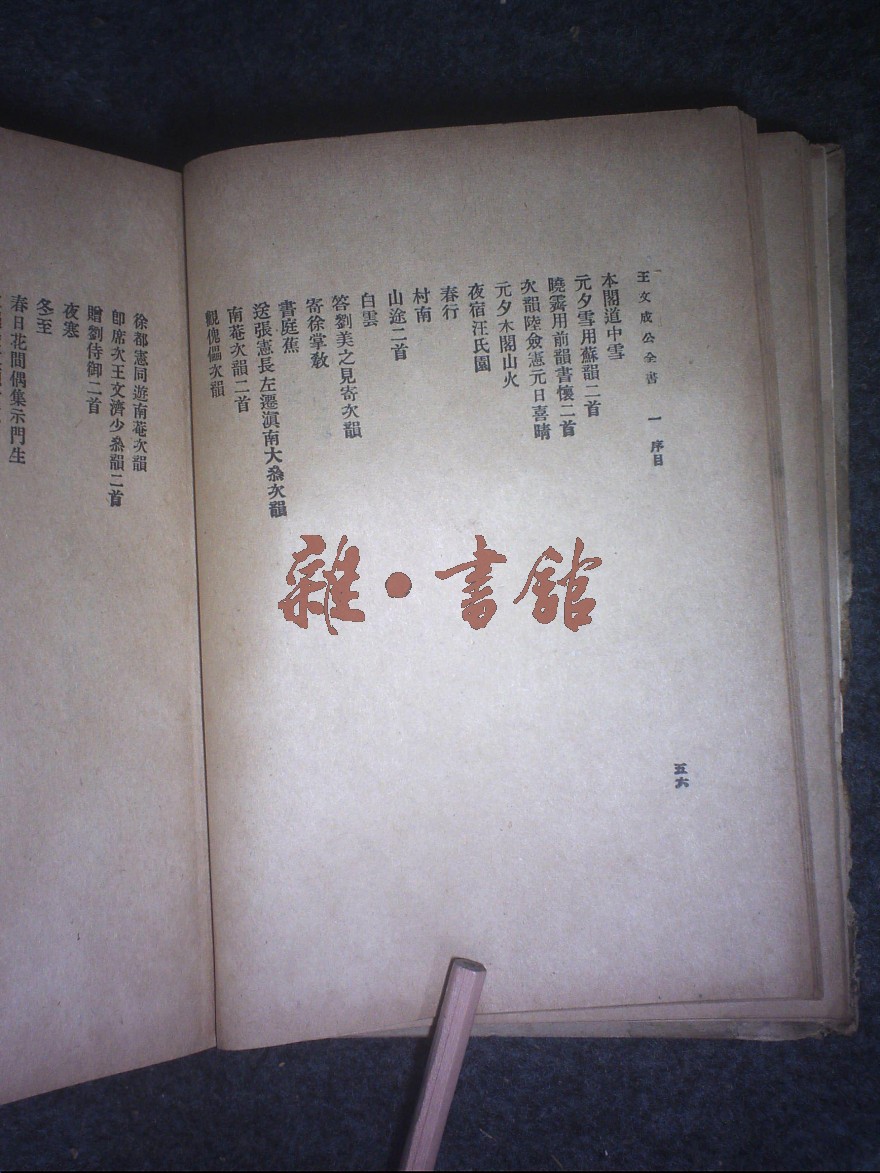 王文成公全書 一 序目
本閣道中雪
元夕雪用蘇韻二首
曉霽用前韻書懷二首
次韻陸僉憲元日喜晴
元夕木閣山火
夜宿汪氏園
春行
村南
山途二首
白雲
答劉美之見寄次韻
寄徐掌敎
書庭蕉
送張憲長左遷滇南大叅次韻
南菴次韻二首
觀傀儡次韻
五六
徐都憲同遊南菴次韻
卽席次王文濟少叅韻二首
贈劉侍御二首
夜寒
冬至
春日花間偶集示門生
雜•書館